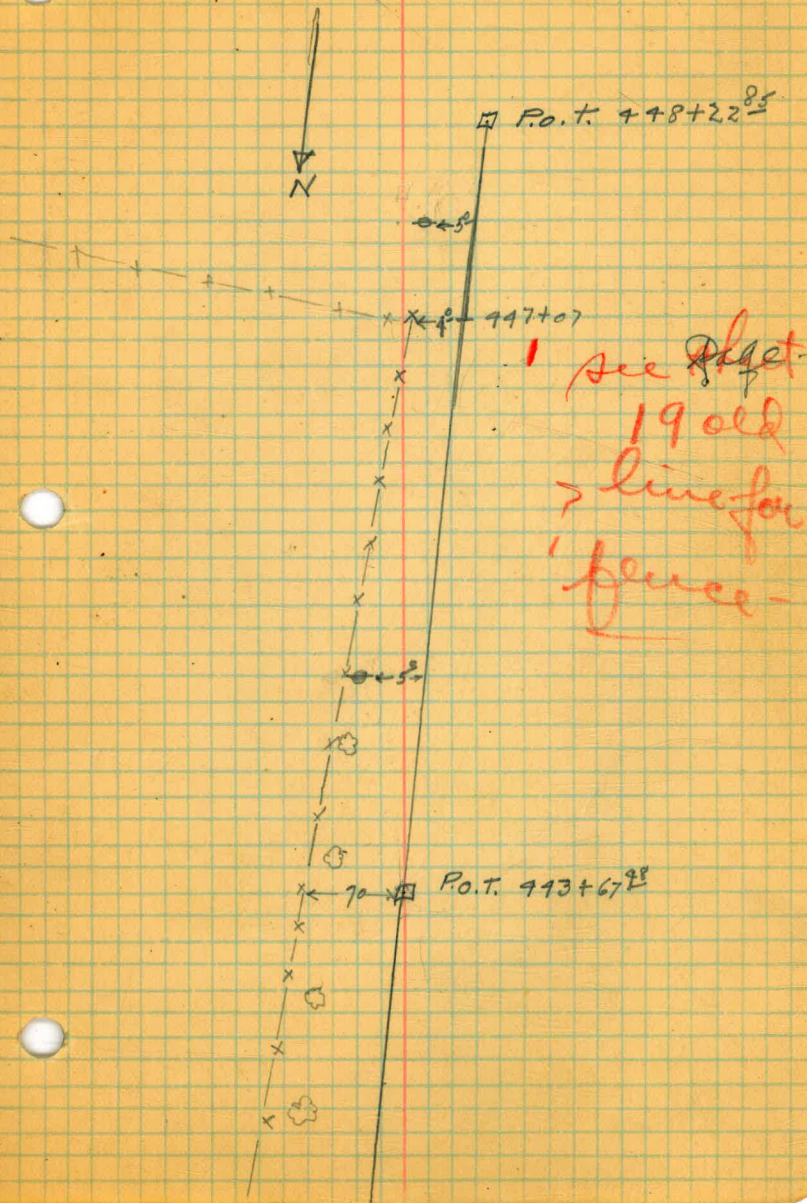 P.O.T. 448+22 85
N
5
4⁰ 447+07
see Page
19 old
line for
fence-
5⁰
70 P.O.T. 443+67 48